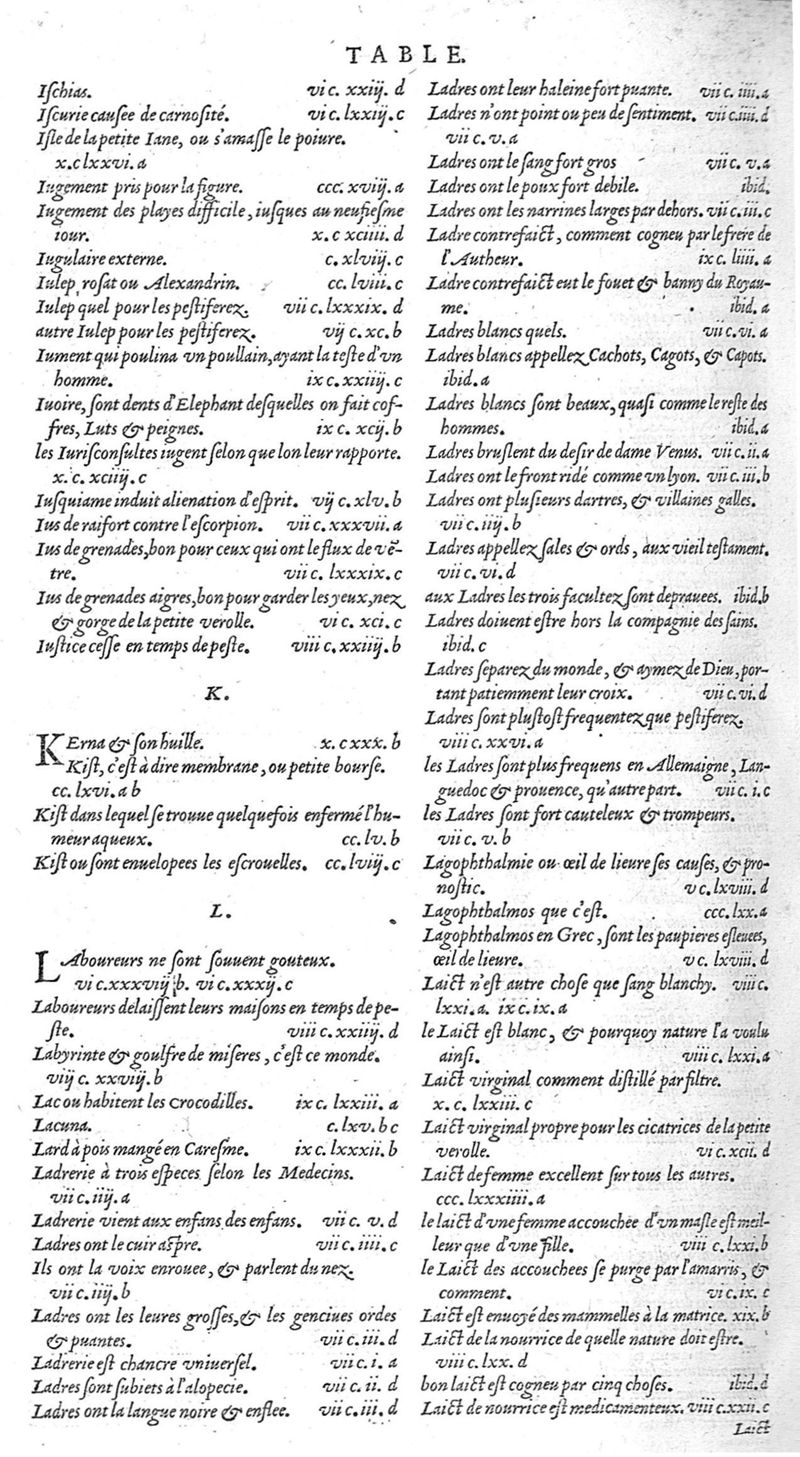 TABLE.
Iſchias. vi c. xxiij. d
Iſcurie cauſee de carnoſité. vi c. lxxiij. c
Iſle de la petite Iane, ou s'amaſſe le poiure.
x.c lxxvi. a
Iugement pris pour la figure. ccc. xviij. a
Iugement des playes difficile, iuſques au neufieſme
iour. x. c xciiii. d
Iugulaire externe. c. xlviij. c
Iulep roſat ou Alexandrin. cc. lviii. c
Iulep quel pour les peſtiferez. vii c. lxxxix. d
autre Iulep pour les peſtiferez. vij c. xc. b
Iument qui poulina vn poullain, ayant la teſte d'vn
homme. ix c. xxiiij. c
Iuoire, ſont dents d'Elephant deſquelles on fait cof-
fres, Luts & peignes. ix c. xcij. b
les Iuriſconſultes iugent ſelon que lon leur rapporte.
x. c. xciiij. c
Iuſquiame induit alienation d'eſprit. vij c. xlv. b
Ius de raifort contre l'eſcorpion. vii c. xxxvii. a
Ius de grenades, bon pour ceux qui ont le flux de vẽ-
tre. vii c. lxxxix. c
Ius de grenades aigres, bon pour garder les yeux, nez
& gorge de la petite verolle. vi c. xci. c
Iuſtice ceſſe en temps de peſte. viii c. xxiiij. b
K.
KErna & ſon huille. x. c xxx. b
Kiſt, c'eſt à dire membrane, ou petite bourſe.
cc. lxvi. a b
Kiſt dans lequel ſe trouue quelquefois enfermé l'hu-
meur aqueux. cc. lv. b
Kiſt ou ſont enuelopees les eſcrouelles. cc. lviij. c
L.
LAboureurs ne ſont ſouuent gouteux.
vi c.xxxviij b. vi c. xxxij. c
Laboureurs delaiſſent leurs maiſons en temps de pe-
ſte. viii c. xxiiij. d
Labyrinte & goulfre de miſeres, c'eſt ce monde.
viij c. xxviij. b
Lac ou habitent les crocodilles. ix c. lxxiii. a
Lacuna. c. lxv. b c
Lard à pois mangé en Careſme. ix c. lxxxii. b
Ladrerie à trois eſpeces ſelon les Medecins.
vii c. iiij. a
Ladrerie vient aux enfans des enfans. vii c. v. d
Ladres ont le cuir aſpre. vii c. iiii. c
Ils ont la voix enrouee, & parlent du nez.
vii c. iiij. b
Ladres ont les leures groſſes, & les genciues ordes
& puantes. vii c. iii. d
Ladrerie eſt chancre vniuerſel. vii c. i. a
Ladres ſont ſubiets à l'alopecie. vii c. ii. d
Ladres ont la langue noire & enflee. vii c. iii. d
Ladres ont leur haleine fort puante. vii c. iiii. a
Ladres n'ont point ou peu de ſentiment. vii c. iiii. d
vii c. v. a
Ladres ont le ſang fort gros vii c. v. a
Ladres ont le poux fort debile. ibid.
Ladres ont les narrines larges par dehors. vii c. iii. c
Ladre contrefaict, comment cogneu par le frere de
l'Autheur. ix c. liiii. a
Ladre contrefaict eut le fouet & banny du Royau-
me. ibid. a
Ladres blancs quels. vii c. vi. a
Ladres blancs appellez Cachots, Cagots, & Capots.
ibid. a
Ladres blancs ſont beaux, quaſi comme le reſte des
hommes. ibid. a
Ladres bruſlent du deſir de dame Venus. vii c. ii. a
Ladres ont le front ridé comme vn lyon. vii c. iii. b
Ladres ont pluſieurs dartres, & villaines galles.
vii c. iiij. b
Ladres appellez ſales & ords, aux vieil teſtament.
vii c. vi. d
aux Ladres les trois facultez ſont deprauees. ibid. b
Ladres doiuent eſtre hors la compagnie des ſains.
ibid. c
Ladres ſeparez du monde, & aymez de Dieu, por-
tant patiemment leur croix. vii c. vi. d
Ladres ſont pluſtoſt frequentez que peſtiferez.
viii c. xxvi. a
les Ladres ſont plus frequens en Allemaigne, Lan-
guedoc & prouence, qu'autre part. vii c. i. c
les Ladres ſont fort cauteleux & trompeurs.
vii c. v. b
Lagophthalmie ou œil de lieure ſes cauſes, & pro-
noſtic. v c. lxviii. d
Lagophthalmos que c'eſt. ccc. lxx. a
Lagophthalmos en Grec, ſont les paupieres eſleuees,
œil de lieure. v c. lxviii. d
Laict n'eſt autre choſe que ſang blanchy. viii c.
lxxi. a. ix c. ix. a
le Laict eſt blanc, & pourquoy nature l'a voulu
ainſi. viii c. lxxi. a
Laict virginal comment diſtillé par filtre.
x. c. lxxiii. c
Laict virginal propre pour les cicatrices de la petite
verolle. vi c. xcii. d
Laict de femme excellent ſur tous les autres.
ccc. lxxxiiii. a
le laict d'vne femme accouchee d'vn maſle eſt meil-
leur que d'vne fille. viii c. lxxi. b
le Laict des accouchees ſe purge par l'amarris, &
comment. vi c. ix. c
Laict eſt enuoyé des mammelles à la matrice. xix. b
Laict de la nourrice de quelle nature doit eſtre.
viii c. lxx. d
bon laict eſt cogneu par cinq choſes. ibid. d
Laict de nourrice eſt medicamenteux. viii c. xxii c
Laict